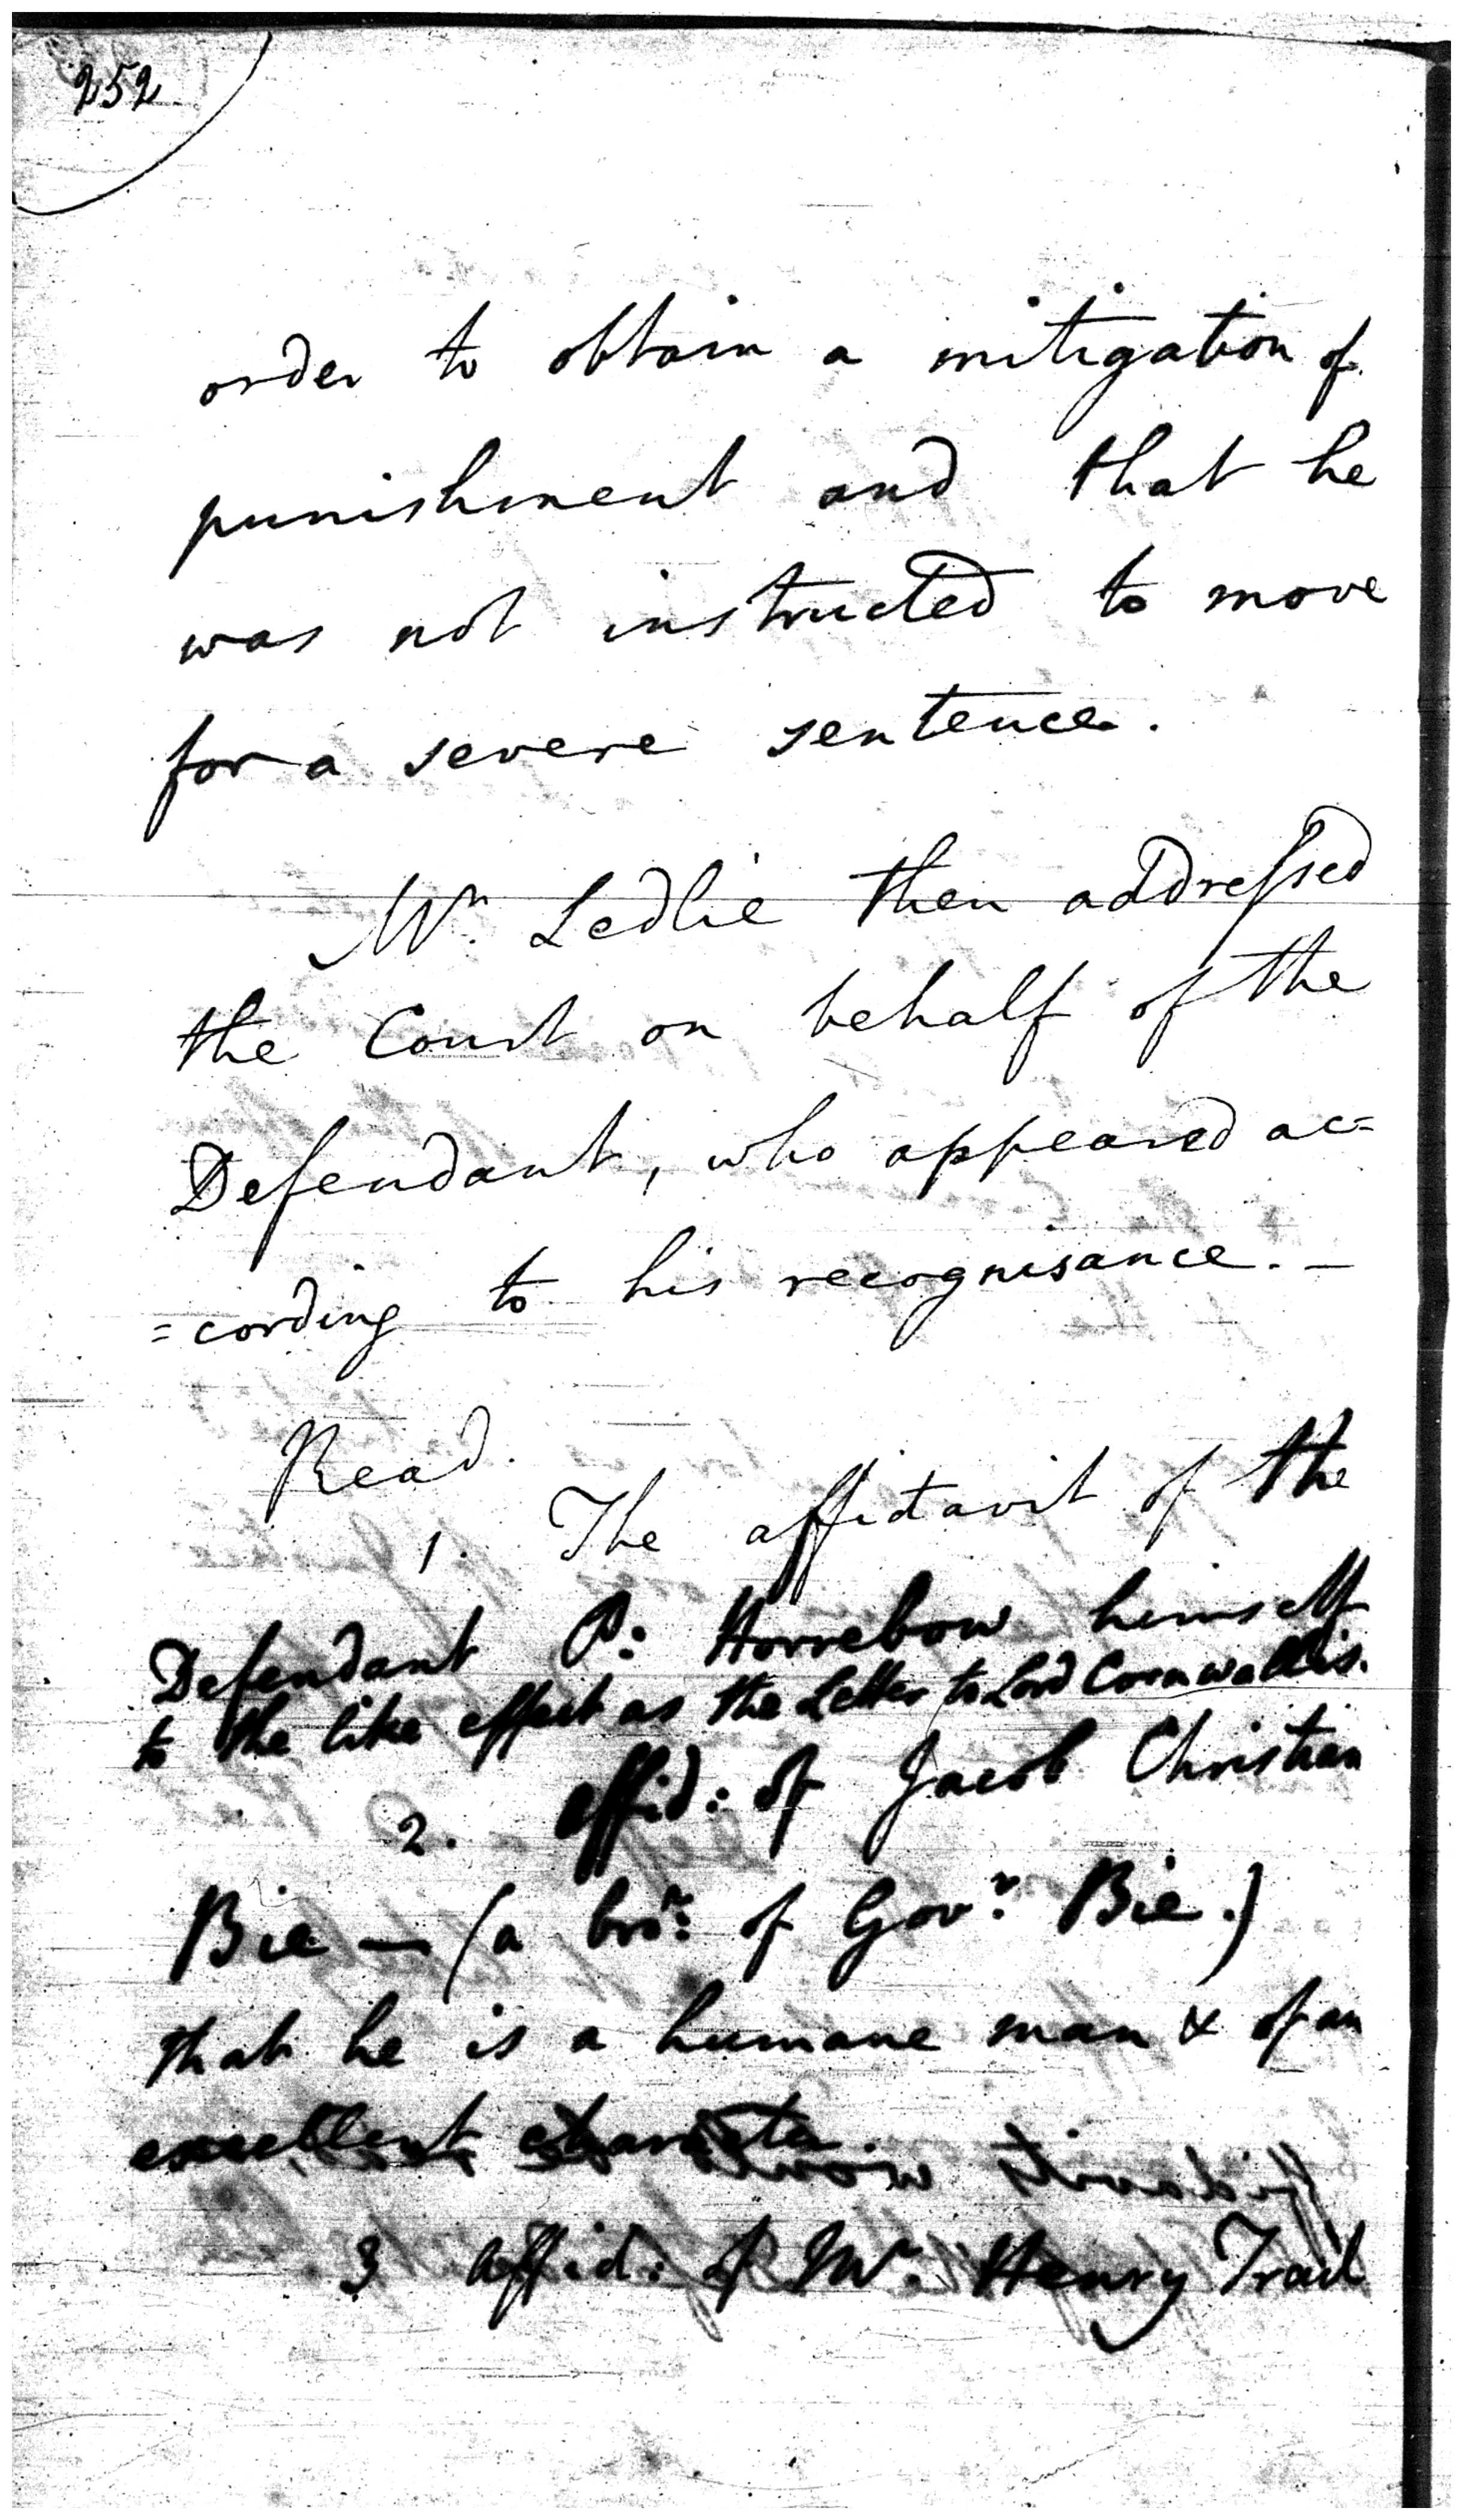 252
order to obtain a mitigation of
punishment and that he
was not instructed to move
for a severe sentence.
Mr. Ledlie then addressed
the Court on behalf of the
Defendant, who appeared ac=
=cording to his recognisance. —
Read.
1. The affidavit of the
Defendant P: Horrebow himself
to the like effect as the Letter to Lord Cornwallis.
2. affid: of Jacob Christian
Bie — (a bror: of Govr: Bie.)
that he is a humane man & of an
excellent character.
3 affid: of Mr. Henry Trail